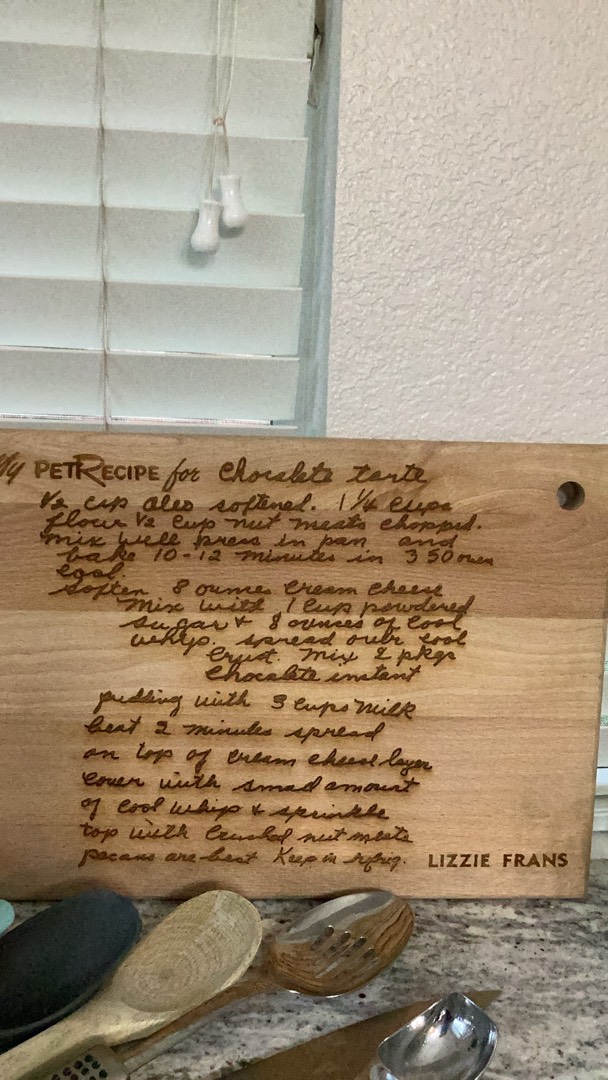 My PET RECIPE for Chocolate tarte
1/2 cup oleo softened. 1 1/4 cups
flour 1/2 cup nut meats chopped.
mix well press in pan and
bake 10-12 minutes in 350 oven
cool
soften 8 ounces cream cheese
mix with 1 cup powdered
sugar + 8 ounces of cool
whip. spread over cool
crust. mix 2 pkgs
chocolate instant
pudding with 3 cups milk
beat 2 minutes spread
on top of cream cheese layer
cover with small amount
of cool whip + sprinkle
top with crushed nut meats
pecans are best Keep in refrig.
LIZZIE FRANS